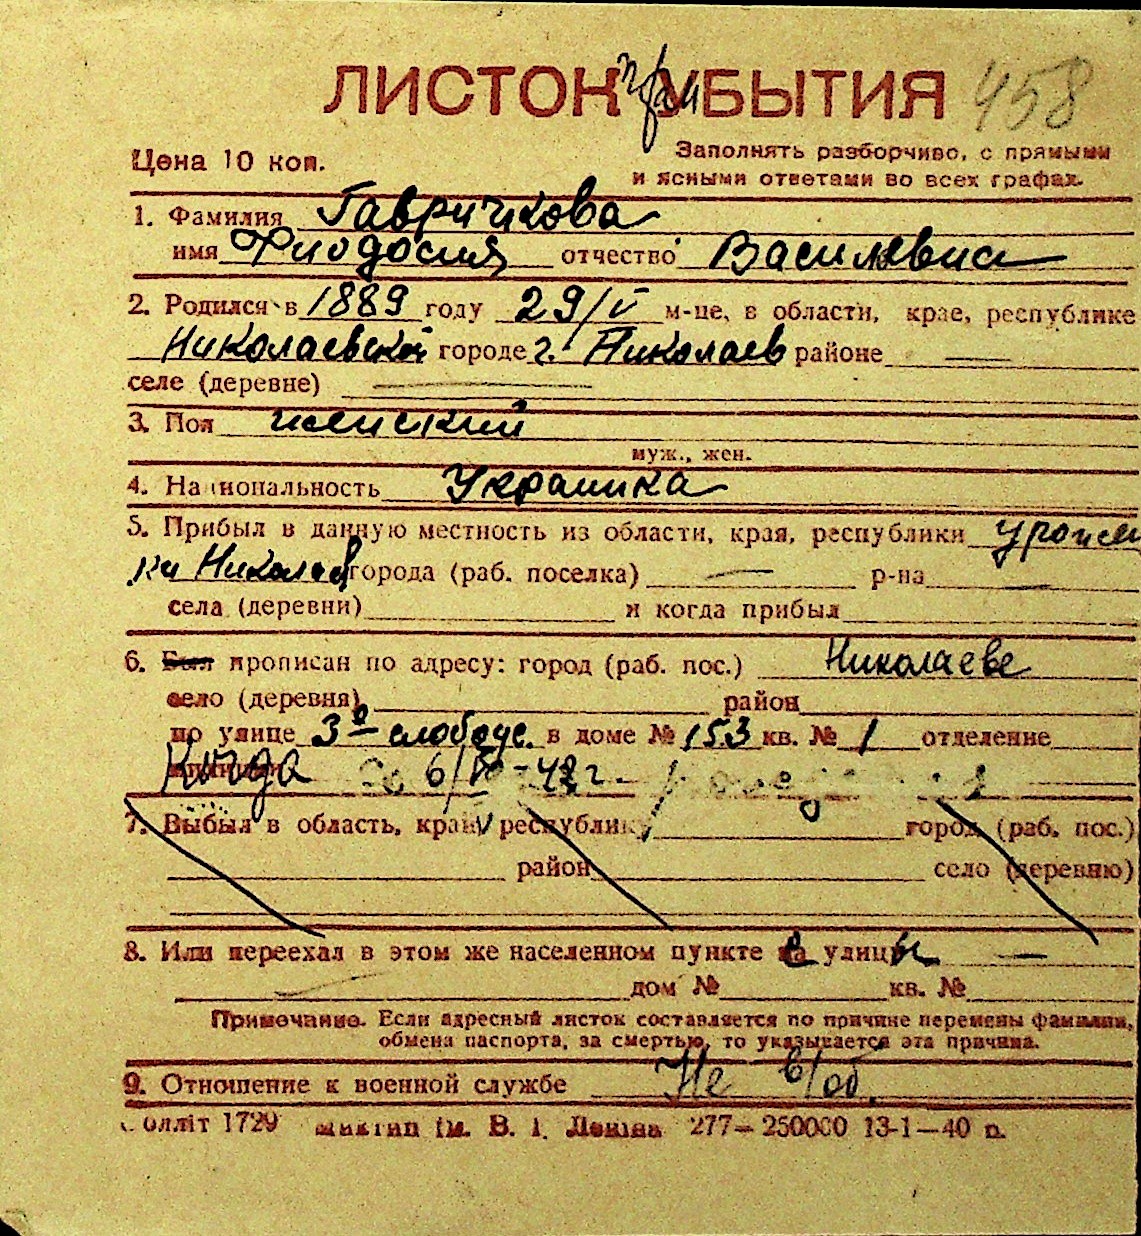 ЛИСТОК УБЫТИЯ 458
Цена 10 коп.
Заполнять разборчиво, с прямыми
и ясными ответами во всех графах.
1. Фамилия Гавричкова
имя Фиодосия отчество Василевна
2. Родился в 1889 году 29/V м-це, в области, крае, республике
Николаевской городе г. Николаев районе —
селе (деревне) —
3. Пол женский
муж., жен.
4. Национальность Украинка
5. Прибыл в данную местность из области, края, республики урожен
ка Николаев города (раб. поселка) — р-на —
села (деревни) и когда прибыл
6. Был прописан по адресу: город (раб. пос.) Николаеве
село (деревня) район
по улице 3я слободс. в доме № 153 кв. № 1 отделение
милиции Когда
7. Выбыл в область, край, республику город (раб. пос.)
район село (деревню)
8. Или переехал в этом же населенном пункте с улицы —
дом № кв. №
Примечание. Если адресный листок составляется по причине перемены фамилии,
обмена паспорта, за смертью, то указывается эта причина.
9. Отношение к военной службе Не в/об.
олліт 1729 ім. В. І. Леніна 277—250000 13-1—40 р.